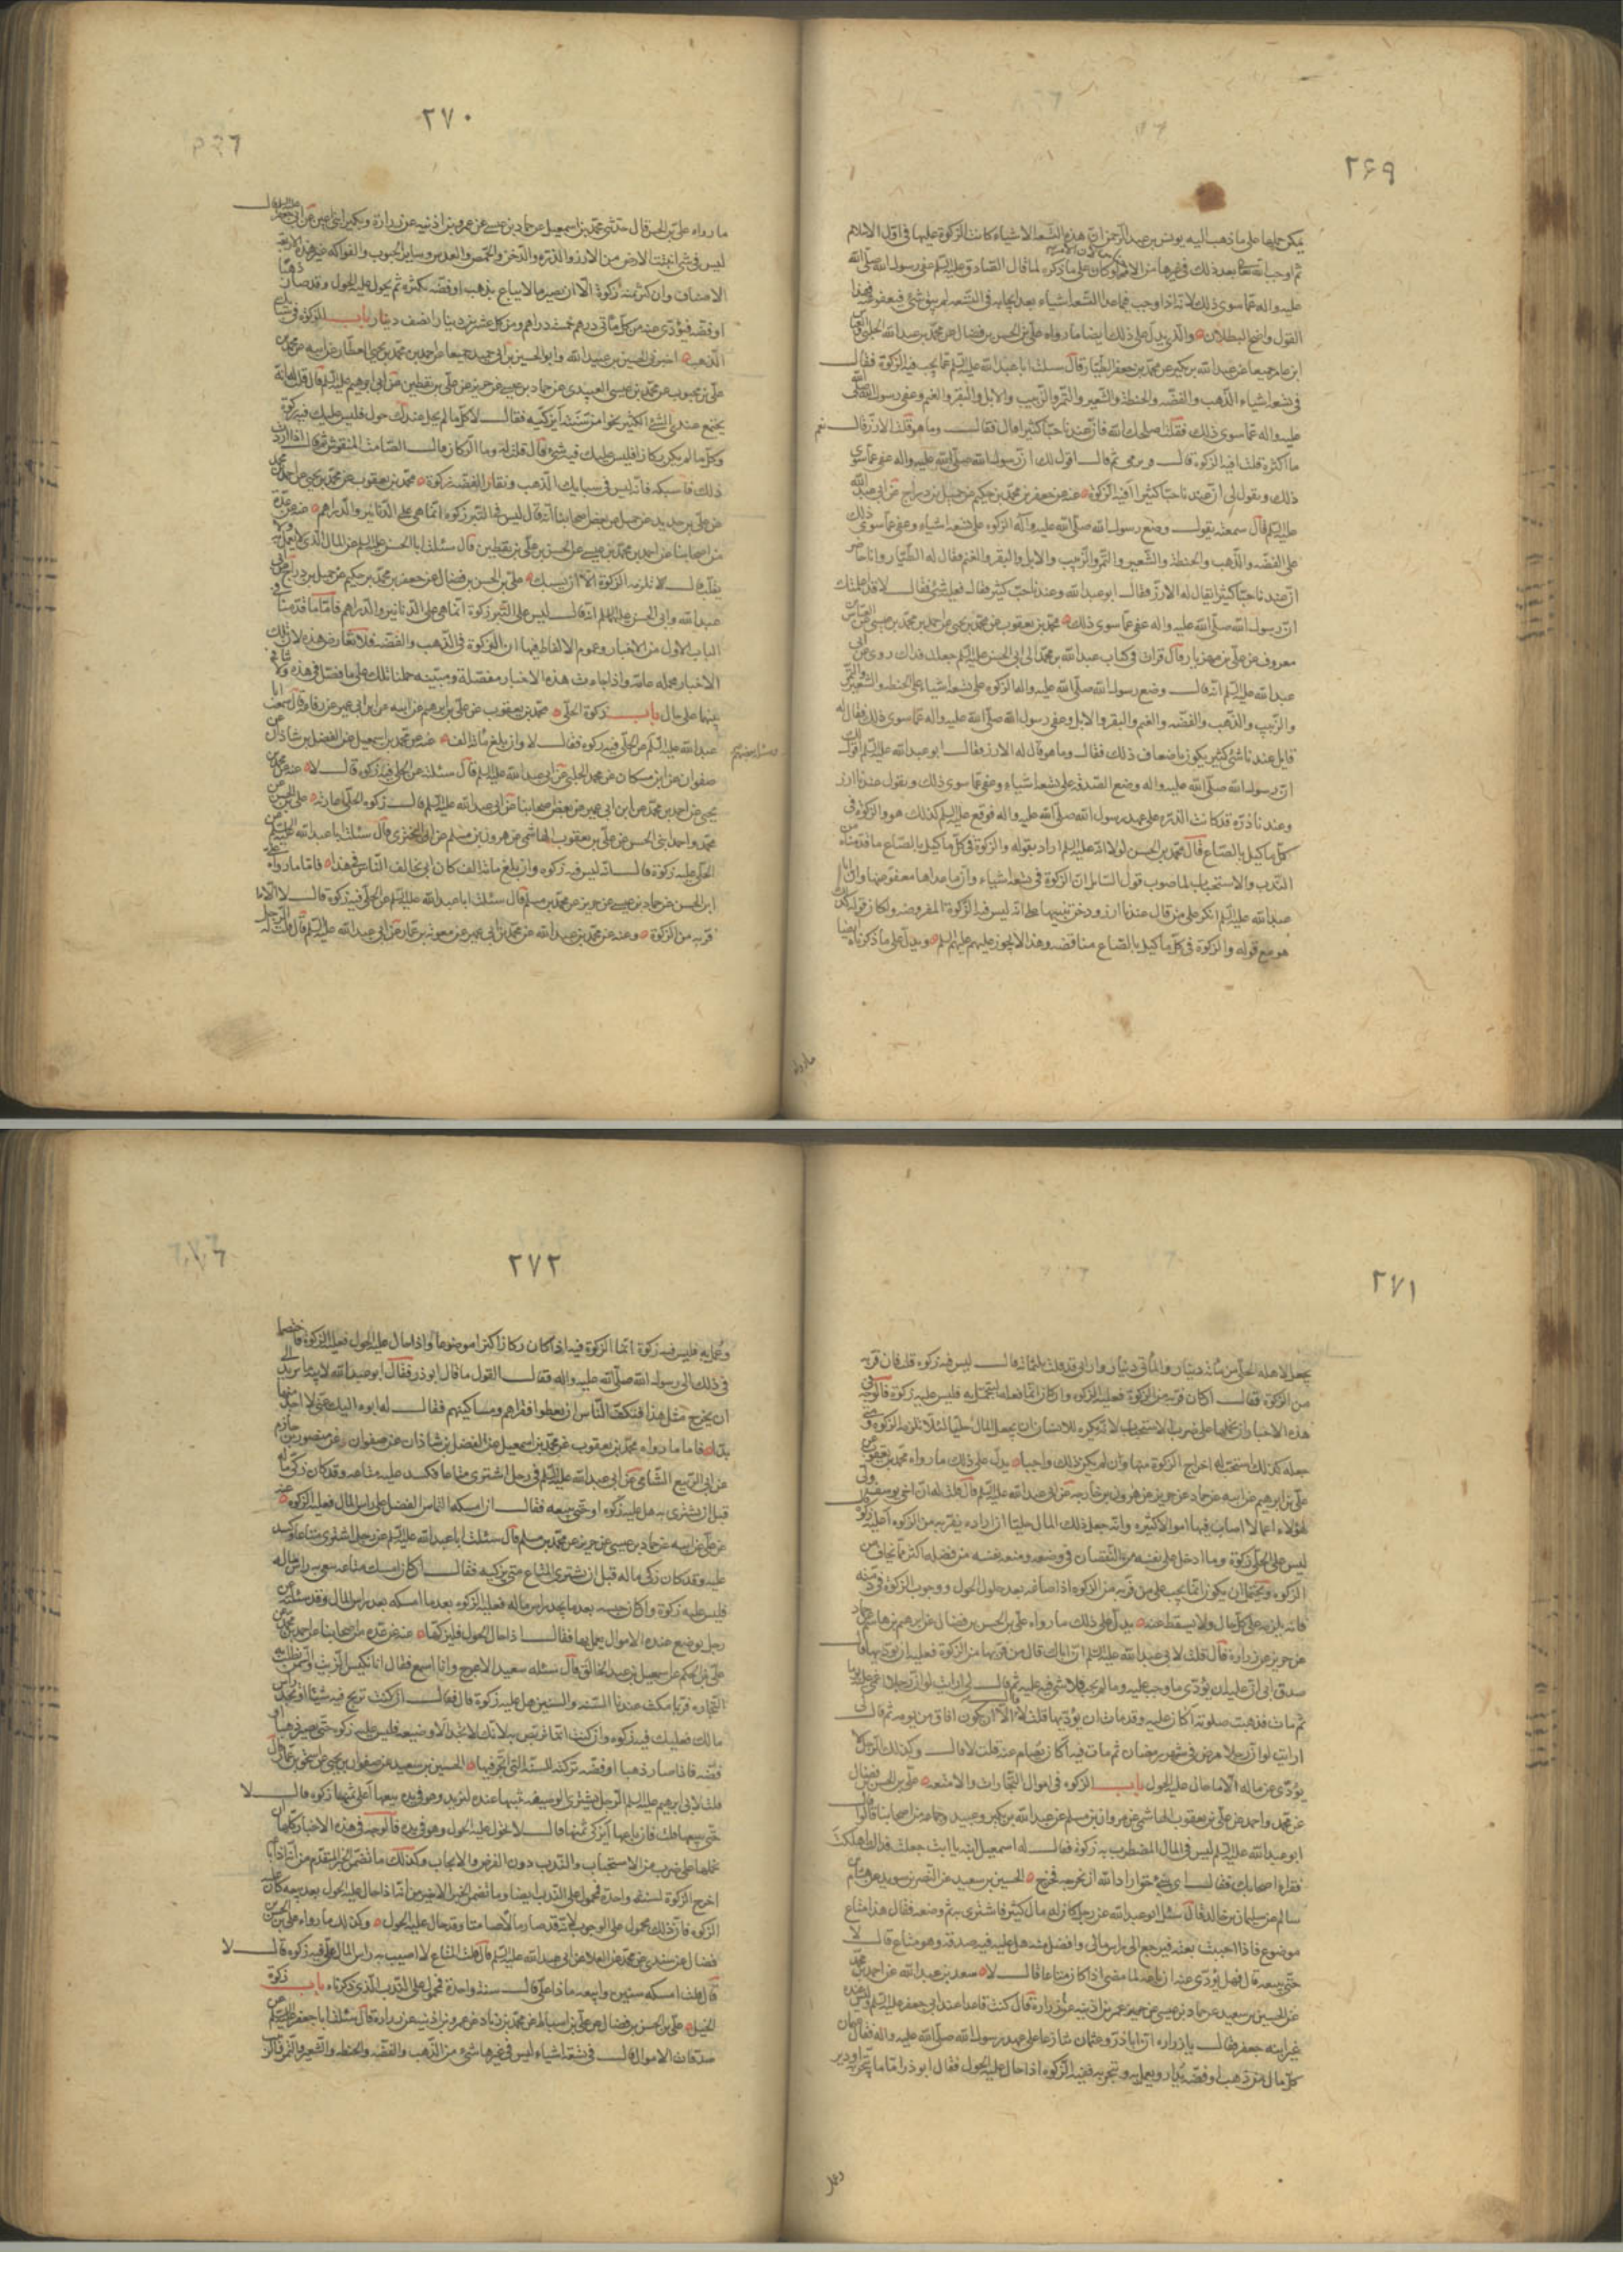 ٢۶٩
يمكن حملها على ما ذهب اليه يونس بن عبد الرحمن ان هذه التسعة الاشياء كانت الزكوة عليها في اول الاسلام
ثم اوجب الله بعد ذلك في غيرها من الاجناس لان الامر لو كان على ما ذكره لما قال الصادق عليه السلم عفى رسول الله صلى الله
عليه واله عما سوى ذلك لانه اذا وجب فيما عدا التسعة اشياء بعد ايجابه في التسعة لم يبق شيء فيعفو عنه فهذا
القول واضح البطلان والذي يدل على ذلك ايضا ما رواه علي بن الحسن بن فضال عن محمد بن عبيد الله الحلبي والعباس
ابن عامر جميعا عن عبد الله بن بكير عن محمد بن جعفر الطيار قال سئلت ابا عبد الله عليه السلم عما يجب فيه الزكوة فقال
في تسعة اشياء الذهب والفضه والحنطة والشعير والتمر والزبيب والابل والبقر والغنم وعفى رسول الله صلى الله
عليه واله عما سوى ذلك فقلت اصلحك الله فان عندنا حبا كثيرا قال فقال وما هو قلت الارز قال نعم
ما اكثره فقلت افيه الزكوة قال فزبرني ثم قال اقول لك ان رسول الله صلى الله عليه واله عفى عما سوى
ذلك وتقول لي ان عندنا حبا كثيرا افيه الزكوة عنه عن جعفر بن محمد بن حكيم عن جميل بن دراج عن ابي عبد الله
عليه السلم قال سمعته يقول وضع رسول الله صلى الله عليه واله الزكوة على تسعة اشياء وعفى عما سوى ذلك
على الفضه والذهب والحنطة والشعير والتمر والزبيب والابل والبقر والغنم فقال له الطيار وانا حاضر
ان عندنا حبا كثيرا يقال له الارز فقال ابو عبد الله وعندنا حب كثير قال فعليه شئ فقال لا قد اعلمتك
ان رسول الله صلى الله عليه واله عفى عما سوى ذلك محمد بن يعقوب عن محمد بن يحيى عن احمد بن محمد بن عيسى عن العباس بن
معروف عن علي بن مهزيار قال قرات في كتاب عبد الله بن محمد الى ابي الحسن عليه السلم جعلت فداك روى عن ابي
عبد الله عليه السلم انه قال وضع رسول الله صلى الله عليه واله الزكوة على تسعة اشياء على الحنطة والشعير والتمر
والزبيب والذهب والفضه والغنم والبقر والابل وعفى رسول الله صلى الله عليه واله عما سوى ذلك فقال له
قايل عندنا شئ كثير يكون باضعاف ذلك فقال وما هو قال له الارز فقال ابو عبد الله عليه السلم اقول لك
ان رسول الله صلى الله عليه واله وضع الصدقة على تسعة اشياء وعفى عما سوى ذلك وتقول عندنا ارز
وعندنا ذرة قد كانت الذرة على عهد رسول الله صلى الله عليه واله فوقع عليه السلم كذلك هو والزكوة في
كل ما كيل بالصاع قال محمد بن الحسن لولا انه عليه السلم اراد بقوله والزكوة في كل ما كيل بالصاع ما قدمناه من
الندب والاستحباب لما صوب قول السائل ان الزكوة في تسعة اشياء وان ما عداها معفو عنها وان ابا
عبد الله عليه السلم انكر على من قال عندنا ارز ودخن تنبيها على انه ليس فيه الزكوة المفروضه ولكان قوله كذلك
هو مع قوله والزكوة في كل ما كيل بالصاع مناقضه وهذا لا يجوز عليهم عليهم السلم ويدل على ما ذكرناه ايضا
ما رواه
٢٧٠
ما رواه علي بن الحسن قال حدثني محمد بن اسمعيل عن حماد بن عيسى عن عمر بن اذينه عن زرارة وبكير ابني اعين عن ابي جعفر عليه السلم قال
ليس في شئ انبتت الارض من الارز والذرة والدخن والحمص والعدس وساير الحبوب والفواكه غير هذه الاربعة
الاصناف وان كثر ثمنه زكوة الا ان يصير مالا يباع بذهب او فضه يكنزه ثم يحول عليه الحول وقد صار ذهبا
او فضه فيؤدى عنه من كل مأتي درهم خمسة دراهم ومن كل عشرين دينارا نصف دينار باب الزكوة في سبايك
الذهب اخبرني الحسين بن عبيد الله وابو الحسين بن ابي جيد جميعا عن احمد بن محمد بن يحيى العطار عن ابيه عن محمد بن
علي بن محبوب عن محمد بن عيسى العبيدي عن حماد بن عيسى عن حريز عن علي بن يقطين عن ابي ابرهيم عليه السلم قال قلت له انه
يجتمع عندي الشئ الكثير نحوا من سنة انزكيه فقال لا كل ما لم يحل عندك حول فليس عليك فيه زكوة
وكل ما لم يكن ركازا فليس عليك فيه شئ قال قلت له وما الركاز قال الصامت المنقوش ثم قال اذا اردت
ذلك فاسبكه فانه ليس في سبايك الذهب ونقار الفضه زكوة محمد بن يعقوب عن محمد بن يحيى عن احمد بن محمد
عن علي بن حديد عن جميل عن بعض اصحابنا انه قال ليس في التبر زكوة انما هي على الدنانير والدراهم عنه عن عدة
من اصحابنا عن احمد بن محمد بن عيسى عن الحسن بن علي بن يقطين قال سئلت ابا الحسن عليه السلم عن المال الذي لا يعمل به ولا
يقلب قال لا تلزمه الزكوة الا ان يسبك علي بن الحسن بن فضال عن جعفر بن محمد بن حكيم عن جميل بن دراج عن ابي
عبد الله وابي الحسن عليهما السلم انه قال ليس على التبر زكوة انما هي على الدنانير والدراهم فاما ما قدمناه في
الباب الاول من الاخبار وعموم الالفاظ فيها ان الزكوة في الذهب والفضه فلا تعارض هذه لان تلك
الاخبار مجمله عامه واذا جاءت هذه الاخبار مفصلة ومبينه حملنا تلك على ما فصل في هذه ولا تنافي
بينها على حال باب زكوة الحلي محمد بن يعقوب عن علي بن ابرهيم عن ابيه عن ابن ابي عمير عن رفاعة قال سمعت ابا
عبد الله عليه السلم عن الحلي فيه زكوة فقال لا وان بلغ مائة الف عنه عن محمد بن اسمعيل عن الفضل بن شاذان عن
صفوان عن ابن مسكان عن محمد الحلبي عن ابي عبد الله عليه السلم قال سئلته عن الحلي فيه زكوة قال لا عنه عن محمد بن
يحيى عن احمد بن محمد عن ابن ابي عمير عن بعض اصحابنا عن ابي عبد الله عليه السلم قال زكوة الحلي عاريته علي بن الحسن عن
محمد واحمد ابني الحسن عن علي بن يعقوب الهاشمي عن هرون بن مسلم عن ابي البختري قال سئلت ابا عبد الله عليه السلم عن
الحلي عليه زكوة قال انه ليس فيه زكوة وان بلغ مائة الف كان ابي يخالف الناس في هذا فاما ما رواه علي
ابن الحسن عن حماد بن عيسى عن حريز عن محمد بن مسلم قال سئلت ابا عبد الله عليه السلم عن الحلي فيه زكوة قال لا الا ما
فر به من الزكوة وعنه عن محمد بن عبد الله عن محمد بن ابي عمير عن معوية بن عمار عن ابي عبد الله عليه السلم قال قلت له الرجل
٢٧١
يجعل لاهله الحلي من مائة دينار والمأتي دينار واراني قد قلت ثلثمائة قال ليس فيه زكوة قلت فان فر به
من الزكوة فقال ان كان فر به من الزكوة فعليه الزكوة وان كان انما فعله ليتجمل به فليس عليه زكوة فالوجه في
هذه الاخبار ان نحملها على ضرب من الاستحباب لانه يكره للانسان ان يجعل المال حليا لئلا تلزمه الزكوة ومتى
جعله كذلك استحب له اخراج الزكوة منها وان لم يكن ذلك واجبا يدل على ذلك ما رواه محمد بن يعقوب عن
علي بن ابرهيم عن ابيه عن حماد عن حريز عن هرون بن خارجه عن ابي عبد الله عليه السلم قال قلت له ان اخي يوسف ولي
لهؤلاء اعمالا اصاب فيها اموالا كثيرة وانه جعل ذلك المال حليا اراد ان يفر به من الزكوة اعليه زكوة قال
ليس على الحلي زكوة وما ادخل على نفسه من النقصان في وضعه ومنعه نفسه من فضله اكثر مما يخاف من
الزكوة ويحتمل ان يكون انما يجب على من فر به من الزكوة اذا صاغه بعد حلول الحول ووجوب الزكوة في ذمته
فانه يلزمه على كل حال ولا يسقط عنه يدل على ذلك ما رواه علي بن الحسن بن فضال عن ابرهيم بن هاشم عن حماد
عن حريز عن زرارة قال قلت لابي عبد الله عليه السلم ان اباك قال من فر بها من الزكوة فعليه ان يؤديها قال
صدق ابي ان عليه ان يؤدي ما وجب عليه وما لم يجب فلا شئ فيه عليه ثم قال لي ارايت لو ان رجلا اغمي عليه يوما
ثم مات فذهبت صلوته اكان عليه وقد مات ان يؤديها قلت لا قال الا ان يكون افاق من يومه ثم قال لي
ارايت لو ان رجلا مرض في شهر رمضان ثم مات فيه اكان يصام عنه قلت لا قال وكذلك الرجل لا
يؤدي عن ماله الا ما حال عليه الحول باب الزكوة في اموال التجارات والامتعة علي بن الحسن بن فضال
عن محمد واحمد عن علي بن يعقوب الهاشمي عن مروان بن مسلم عن عبد الله بن بكير وعبيد وجماعه من اصحابنا قالوا قال
ابو عبد الله عليه السلم ليس في المال المضطرب به زكوة فقال له اسمعيل ابنه يا ابت جعلت فداك اهلكت
فقراء اصحابك فقال اي بني حق اراد الله ان يخرجه فخرج الحسين بن سعيد عن النضر بن سويد عن هشام بن
سالم عن سليمان بن خالد قال سئل ابو عبد الله عن رجل كان له مال كثير فاشترى به متاعا ثم وضعه فقال هذا متاع
موضوع فاذا احببت بعته فيرجع الى راس مالي وافضل منه هل عليه فيه صدقة وهو متاع قال لا
حتى يبيعه قال فهل يؤدي عنه ان باعه لما مضى اذا كان متاعا قال لا سعد بن عبد الله عن احمد بن محمد
عن الحسين بن سعيد عن حماد بن عيسى عن عمر بن اذينه عن زرارة قال كنت قاعدا عند ابي جعفر عليه السلم وليس عنده
غير ابنه جعفر فقال يا زرارة ان ابا ذر وعثمان تنازعا على عهد رسول الله صلى الله عليه واله فقال عثمان
كل مال من ذهب او فضه يدار ويعمل به ويتجر به ففيه الزكوة اذا حال عليه الحول فقال ابو ذر اما ما يتجر به او دير
وعمل
٢٧٢
وعمل به فليس فيه زكوة انما الزكوة فيه اذا كان ركازا كنزا موضوعا واذا حال عليه الحول فعليه الزكوة فاختصما
في ذلك الى رسول الله صلى الله عليه واله فقال القول ما قال ابو ذر فقال ابو عبد الله لابيه ما تريد الى
ان يخرج مثل هذا فيكف الناس ان يعطوا فقراهم ومساكينهم فقال له ابوه اليك عني لا اجد منها
بدا فاما ما رواه محمد بن يعقوب عن محمد بن اسمعيل عن الفضل بن شاذان عن صفوان عن منصور بن حازم
عن ابي الربيع الشامي عن ابي عبد الله عليه السلم في رجل اشترى متاعا فكسد عليه متاعه وقد كان زكى ماله
قبل ان يشترى به هل عليه زكوة او حتى يبيعه فقال ان امسكه التماس الفضل على راس المال فعليه الزكوة عنه
عن علي عن ابيه عن حماد بن عيسى عن حريز عن محمد بن مسلم قال سئلت ابا عبد الله عليه السلم عن رجل اشترى متاعا وكسد
عليه وقد كان زكى ماله قبل ان يشترى المتاع متى يزكيه فقال ان كان امسك متاعه يبتغي به راس ماله
فليس عليه زكوة وان كان حبسه بعد ما يجد راس ماله فعليه الزكوة بعد ما امسكه بعد راس المال وقد سئلته عن
رجل يوضع عنده الاموال يعمل بها فقال اذا حال الحول فليزكها عنه عن عدة من اصحابنا عن احمد بن محمد عن
علي بن الحكم عن اسمعيل بن عبد الخالق قال سئله سعيد الاعرج وانا اسمع فقال انا نكبس الزيت والسمن نطلب به
التجارة فربما مكث عندنا السنة والسنتين هل عليه زكوة قال فقال ان كنت تربح فيه شيئا او تجد راس
مالك فعليك فيه زكوة وان كنت انما تربص به لانك لا تجد الا وضيعه فليس عليك زكوة حتى يصير ذهبا او
فضه فاذا صار ذهبا او فضه تزكيه للسنة التي اتجر فيها الحسين بن سعيد عن صفوان بن يحيى عن اسحق بن عمار قال
قلت لابي ابرهيم عليه السلم الرجل يشتري الوصيفه يثبتها عنده لتزيد وهو يريد بيعها اعلى ثمنها زكوة قال لا
حتى يبيعها قلت فان باعها ايزكي ثمنها قال لا حتى يحول عليه الحول وهو في يده فالوجه في هذه الاخبار كلها ان
نحملها على ضرب من الاستحباب والندب دون الفرض والايجاب وكذلك ما تضمن الخبر المتقدم من انه اذا باع
اخرج الزكوة لسنة واحدة فمحمول على الندب ايضا وما تضمن الخبر الاخير من انه اذا حال عليه الحول بعد بيعه كان عليه
الزكوة فان ذلك محمول على الوجوب لانه قد صار مالا صامتا وقد حال عليه الحول وكذلك ما رواه علي بن الحسن بن
فضال عن سندي بن محمد عن العلا عن ابي عبد الله عليه السلم قال قلت المتاع لا اصيب به راس المال علي فيه زكوة قال لا
قال قلت امسكه سنين وابيعه ماذا علي قال سنة واحدة فمحمول على الندب الذي ذكرناه باب زكوة
الخيل علي بن الحسن بن فضال عن علي بن اسباط عن محمد بن زياد عن عمر بن اذينه عن زرارة قال سئلت ابا جعفر عليه السلم عن
صدقات الاموال قال في تسعة اشياء ليس في غيرها شئ من الذهب والفضة والحنطه والشعير والتمر والز